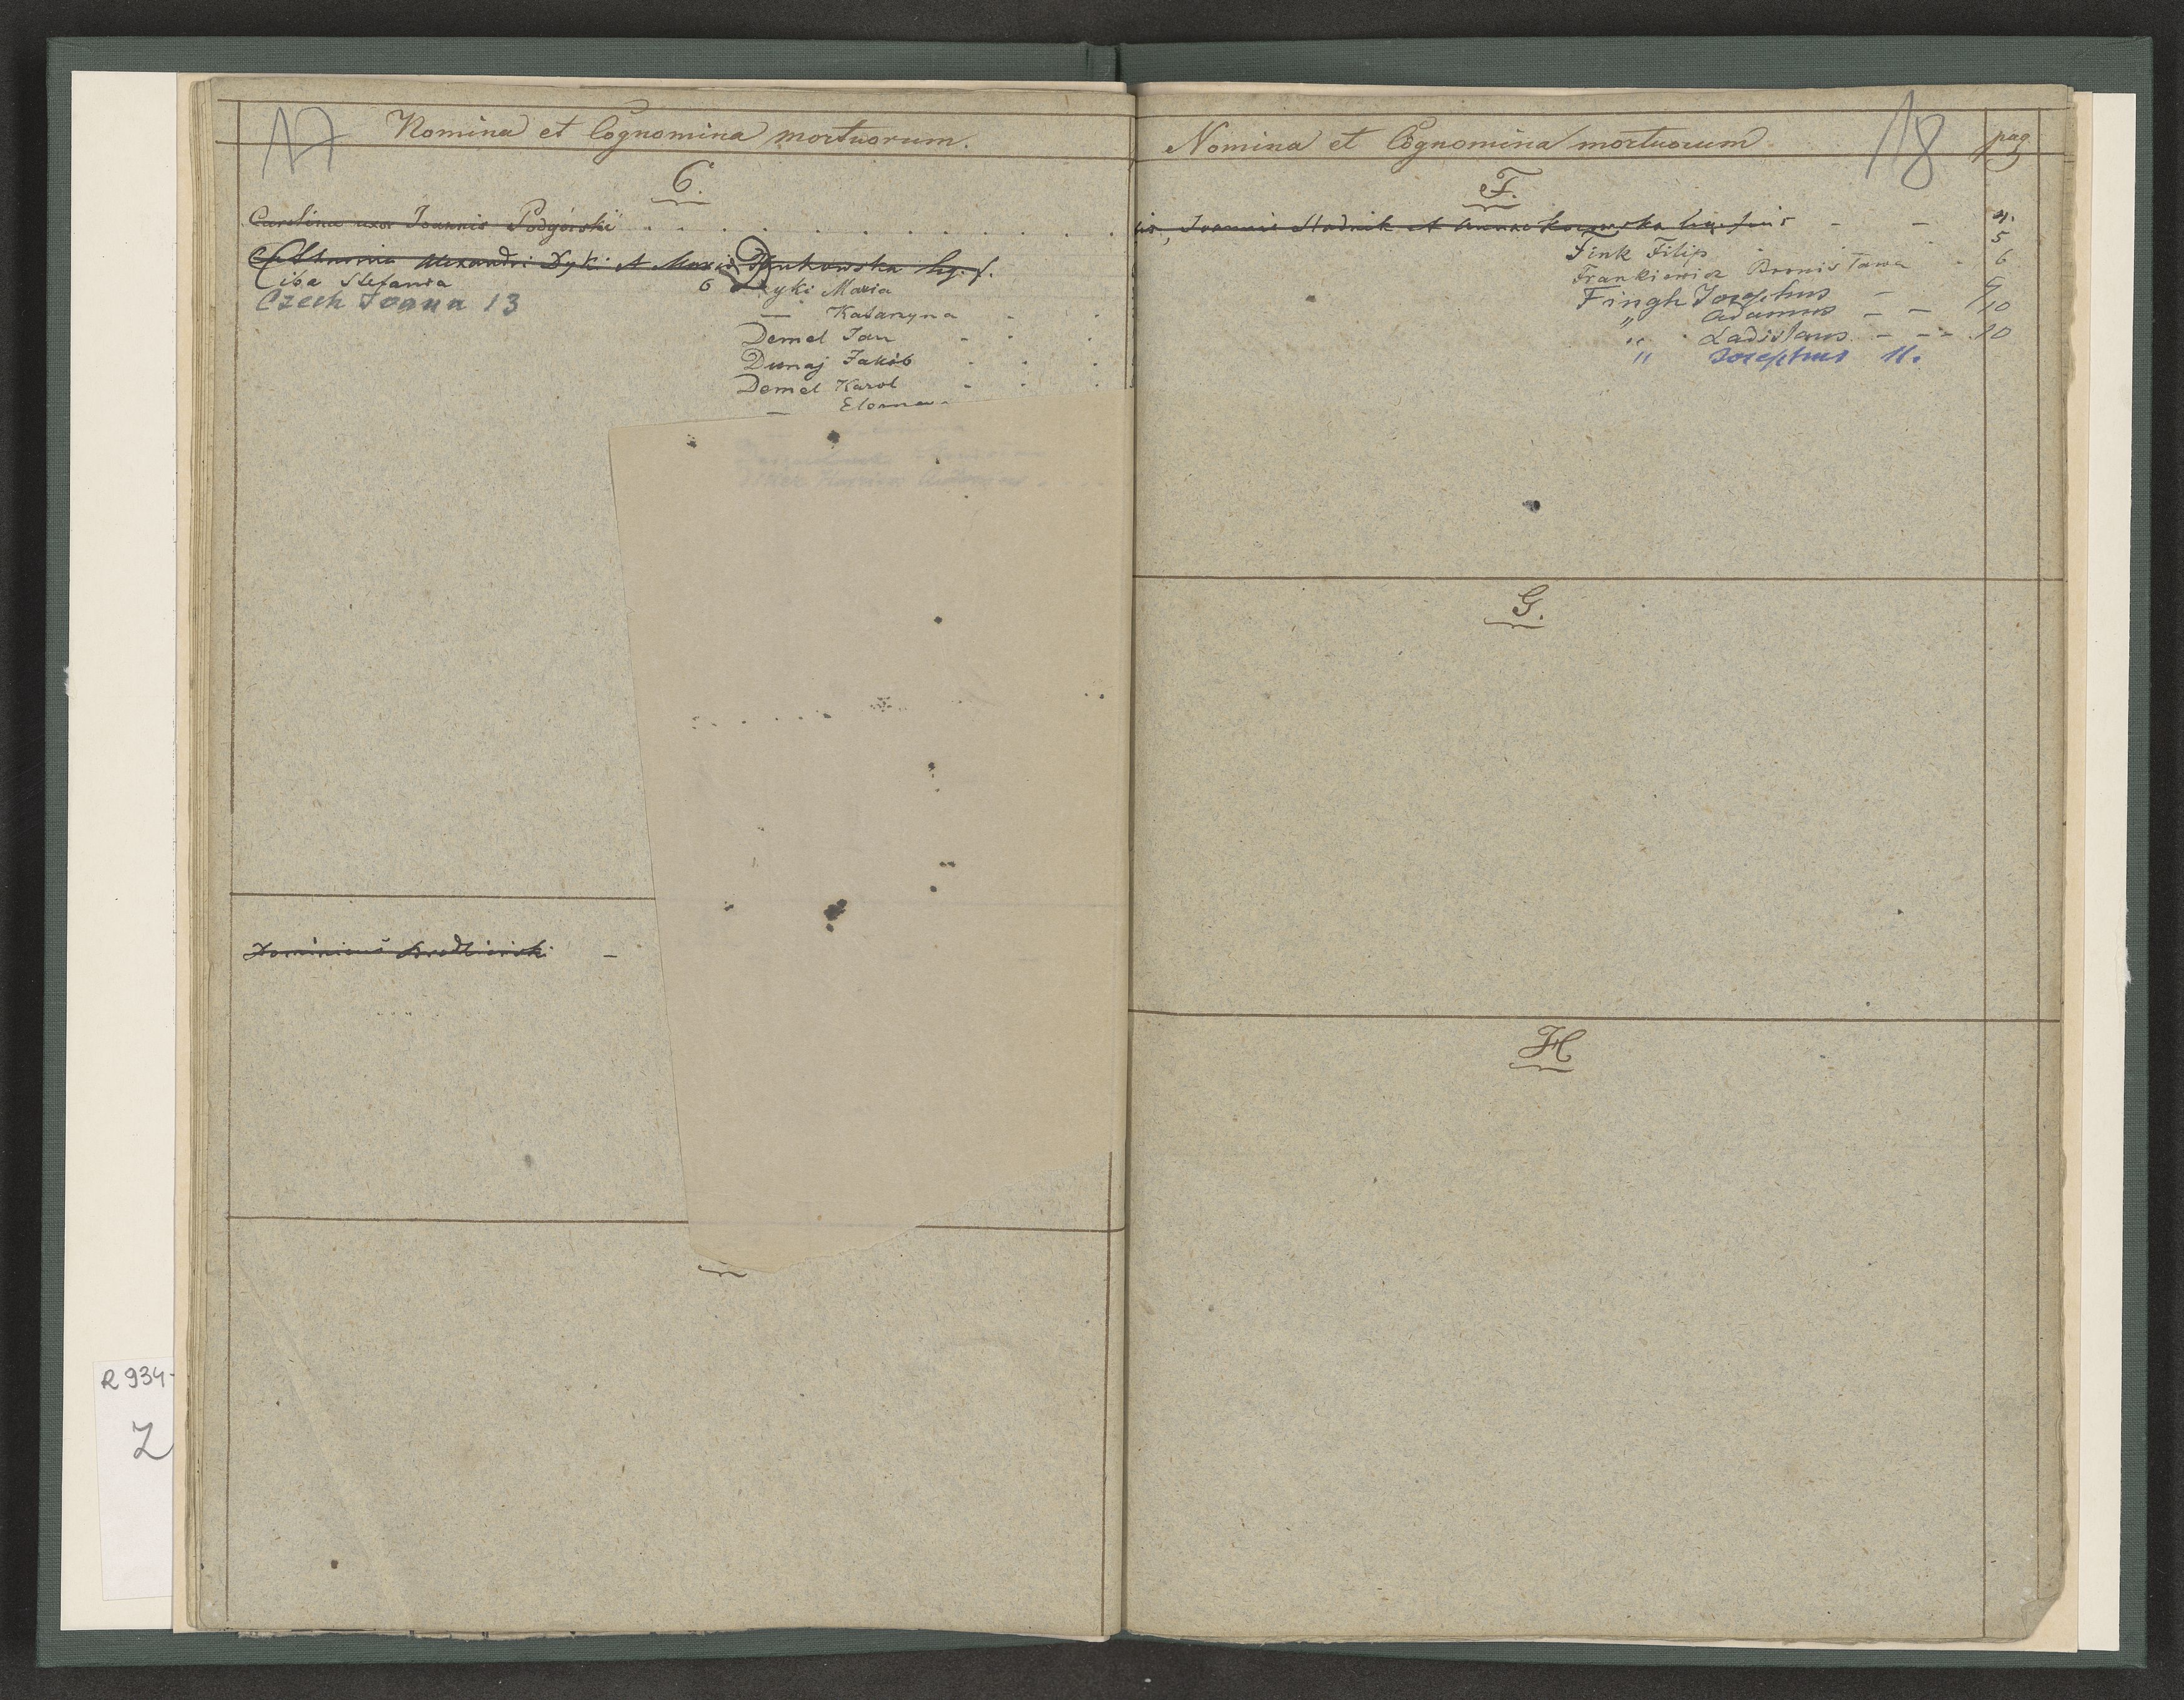 17 Nomina et Cognomina mortuorum.
C.
Carolina uxor Joannis Podgórski
Alexandri Dyki et Maria leg. f.
Ciba Stefania 6
Czech Joana 13
Dyki Maria
— Katarzyna - -
Demel Jan - - -
Dunaj Jakób - - -
Demel Karol - - -
—
Dominicus -
Nomina et Cognomina mortuorum 18 pag.
F.
Joannis Stadnik et Annae leg. - - 4.
Fink Filip 5
Frankiewicz Bronisława - 6
Fingh Josephus - 9
" Adamus - - 10
" Ladislaus - - - 10
" Josephus 11.
G.
H
R 934-
Z